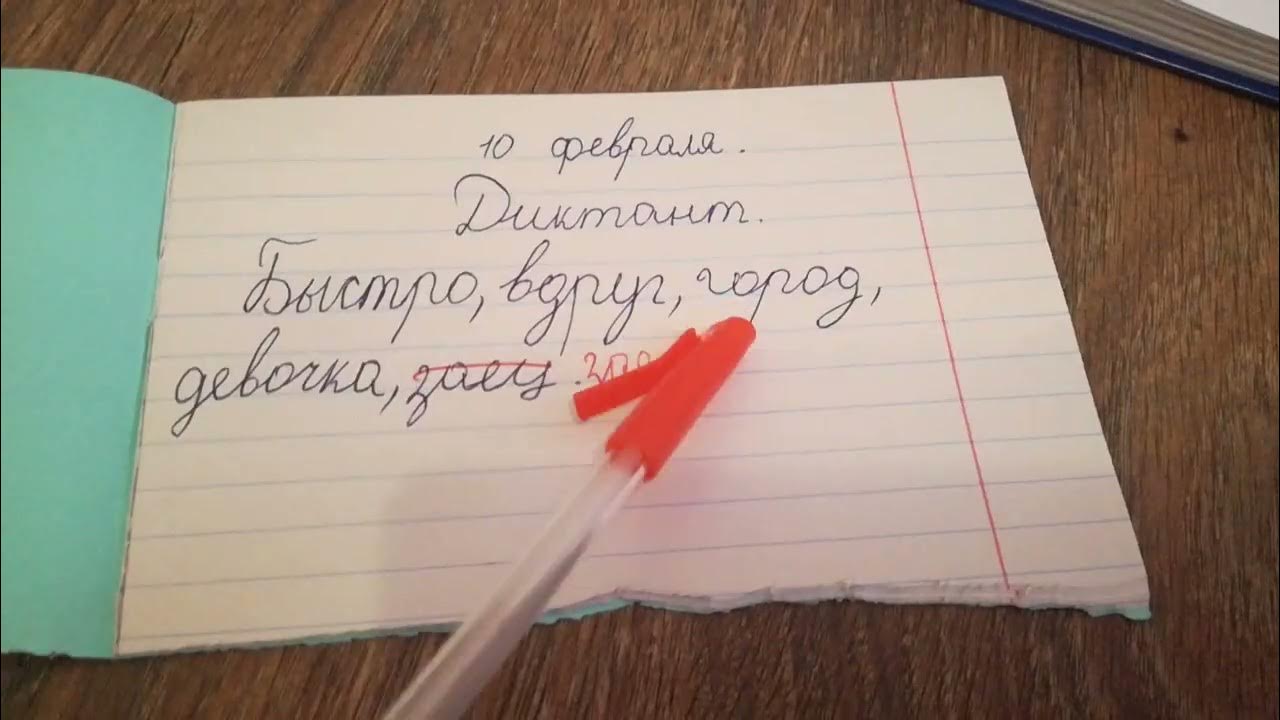 10 февраля.
Диктант.
Быстро, вдруг, город,
девочка, заец.